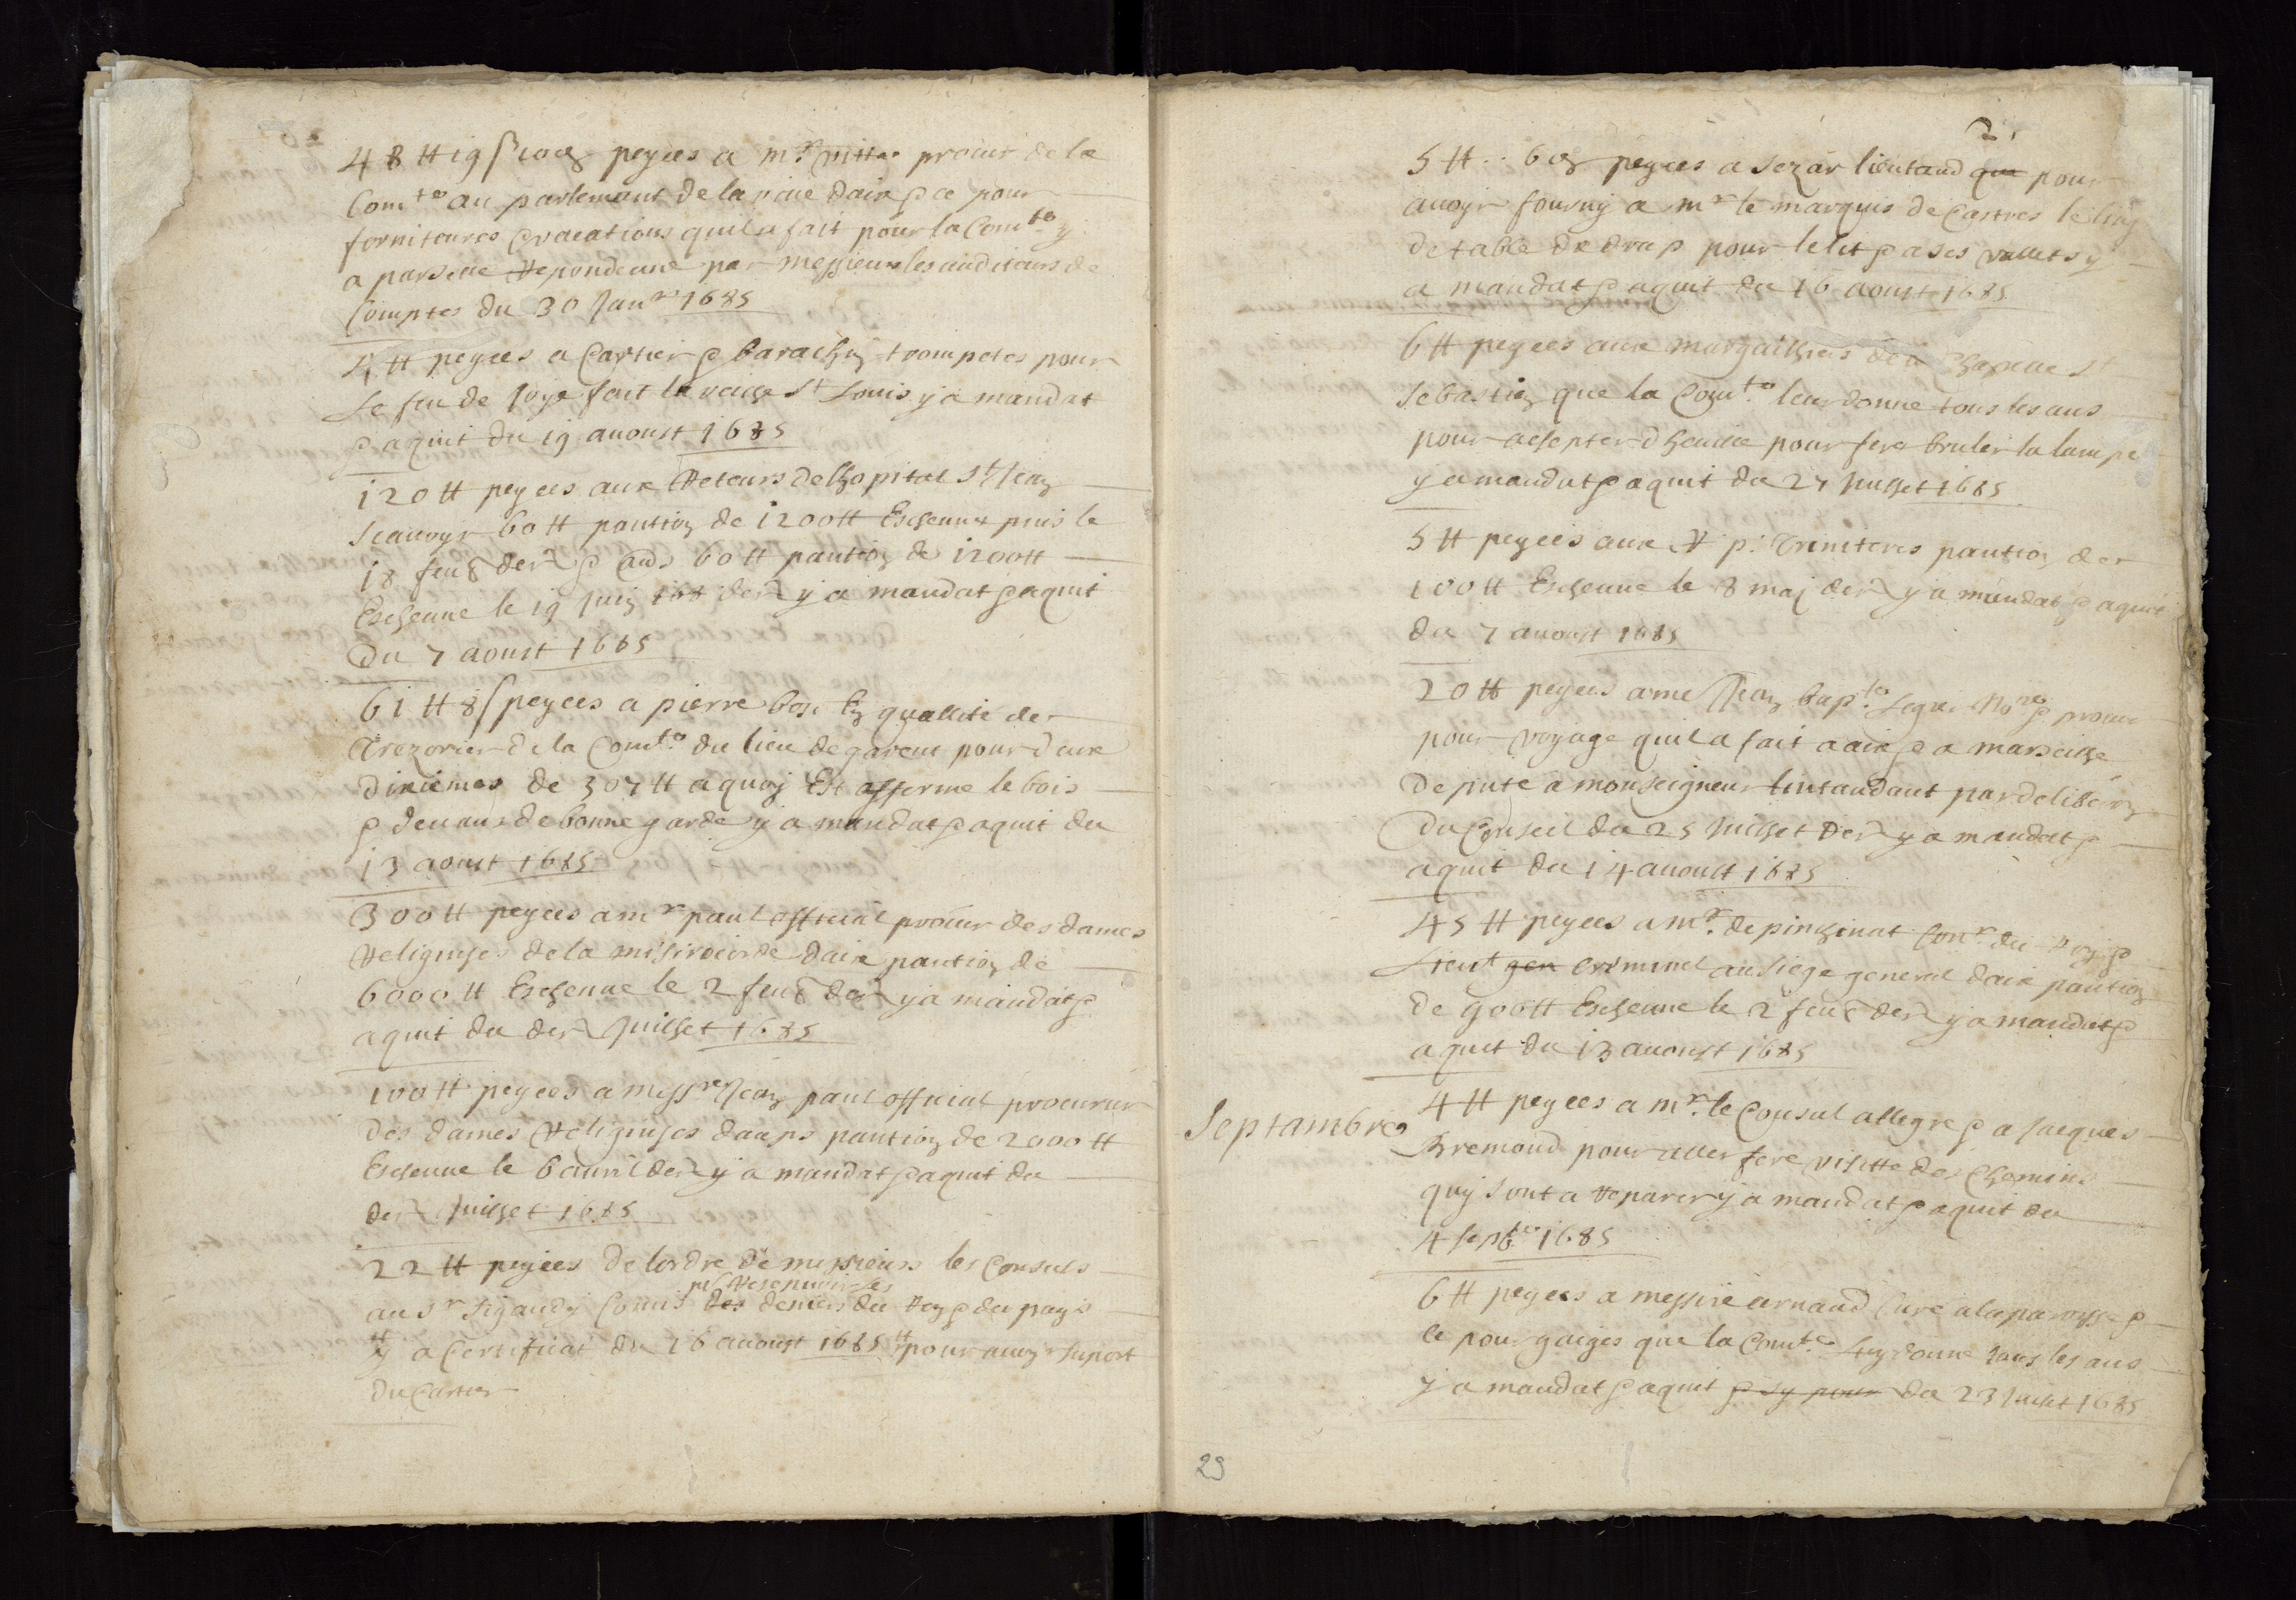 48 ₶ 19 s 10 d peyees a mr procur de la
Comte au parlemant de la ville daix & ce pour
fornitoures & vacations quil a fait pour la Comte y
a parselle Repondeue par messieurs les auditeurs de
Comptes du 30 Janr 1685
4 ₶ peyees a Cartier & barachin trompetes pour
Le feu de Joye fait la veilhe St Louis y a mandat
& aquit du 19 auoust 1685
120 ₶ peyees aux Reteurs de lhopital St Jean
Scauoyr 60 ₶ pantion de 1200 ₶ Escheue puis le
18 feur der & 60 ₶ pantion de 1200 ₶
Escheue le 19 Juin 168 der y a mandat & aquit
Du 7 aoust 1685
61 ₶ 8 s peyees a pierre bosc En quallite de
Trezorier de la Comte du lieu de gareut pour deux
dixiemes de 307 ₶ a quoy Est afferme le bois
& deuans de bonne garde y a mandat & aquit du
13 aoust 1685
300 ₶ peyees a mr paul official procur des dames
Religieuses de la misiricorde daix pantion de
6000 ₶ Escheue le 2 feur der y a mandat &
aquit du der Juillet 1685
100 ₶ peyees a messre Jean paul official procureur
des dames Religieuses daups pantion de 2000 ₶
Escheue le 6 auril der y a mandat & aquit du
der Juillet 1685
22 ₶ peyees de lordre de messieurs les Consuls
au Sr Sigaudy Comis des deniers du Roy & du pays
y a Certificat du 16 auoust 1685 pour auoyr suport
du Cartier
2
5 ₶ .. 6 d peyees a Sezar lieutaud que pour
auoyr fourny a mr le marquis de Castres le linj
de table & drap pour le lit & a ses vallets y
a mandat & aquit du 16 aoust 1685
6 ₶ peyees aux marguilhiers de la Chapelle St
Sebastien que la Comte leur donne tous les ans
pour achepter dheuille pour fere bruler la lampe
y a mandat & aquit du 27 Juillet 1685
5 ₶ peyees aux R p. Trinitères pantion de
100 ₶ Escheue le 8 maj der y a mandat & aquit
du 7 auoust 1685
20 ₶ peyees a me Jean bapte Segu Nore & procur
pour voyage quil a fait a aix & a marseilhe
Depute a monseigneur lintandant par deliberon
Du Conseil du 25 Juillet der y a mandat &
aquit du 14 auoust 1685
45 ₶ peyees a mr. de pinchinat Conr. du Roy &
Lieut gen criminel au siege general daix pantion
de 900 ₶ Escheue le 2 feur der y a mandat &
aquit du 13 auoust 1685
Septambre
4 ₶ peyees a mr. le Consul allegre & a Jacques
Bremond pour aller fere visitte des Chemins
quj sont a Reparer y a mandat & aquit du
4 septbre 1685
6 ₶ peyees a messire arnaud Cure a la paroisse &
ce pour gaiges que la Comte Luy donne tous les ans
y a mandat & aquit & sy pour du 23 Juillet 1685
29